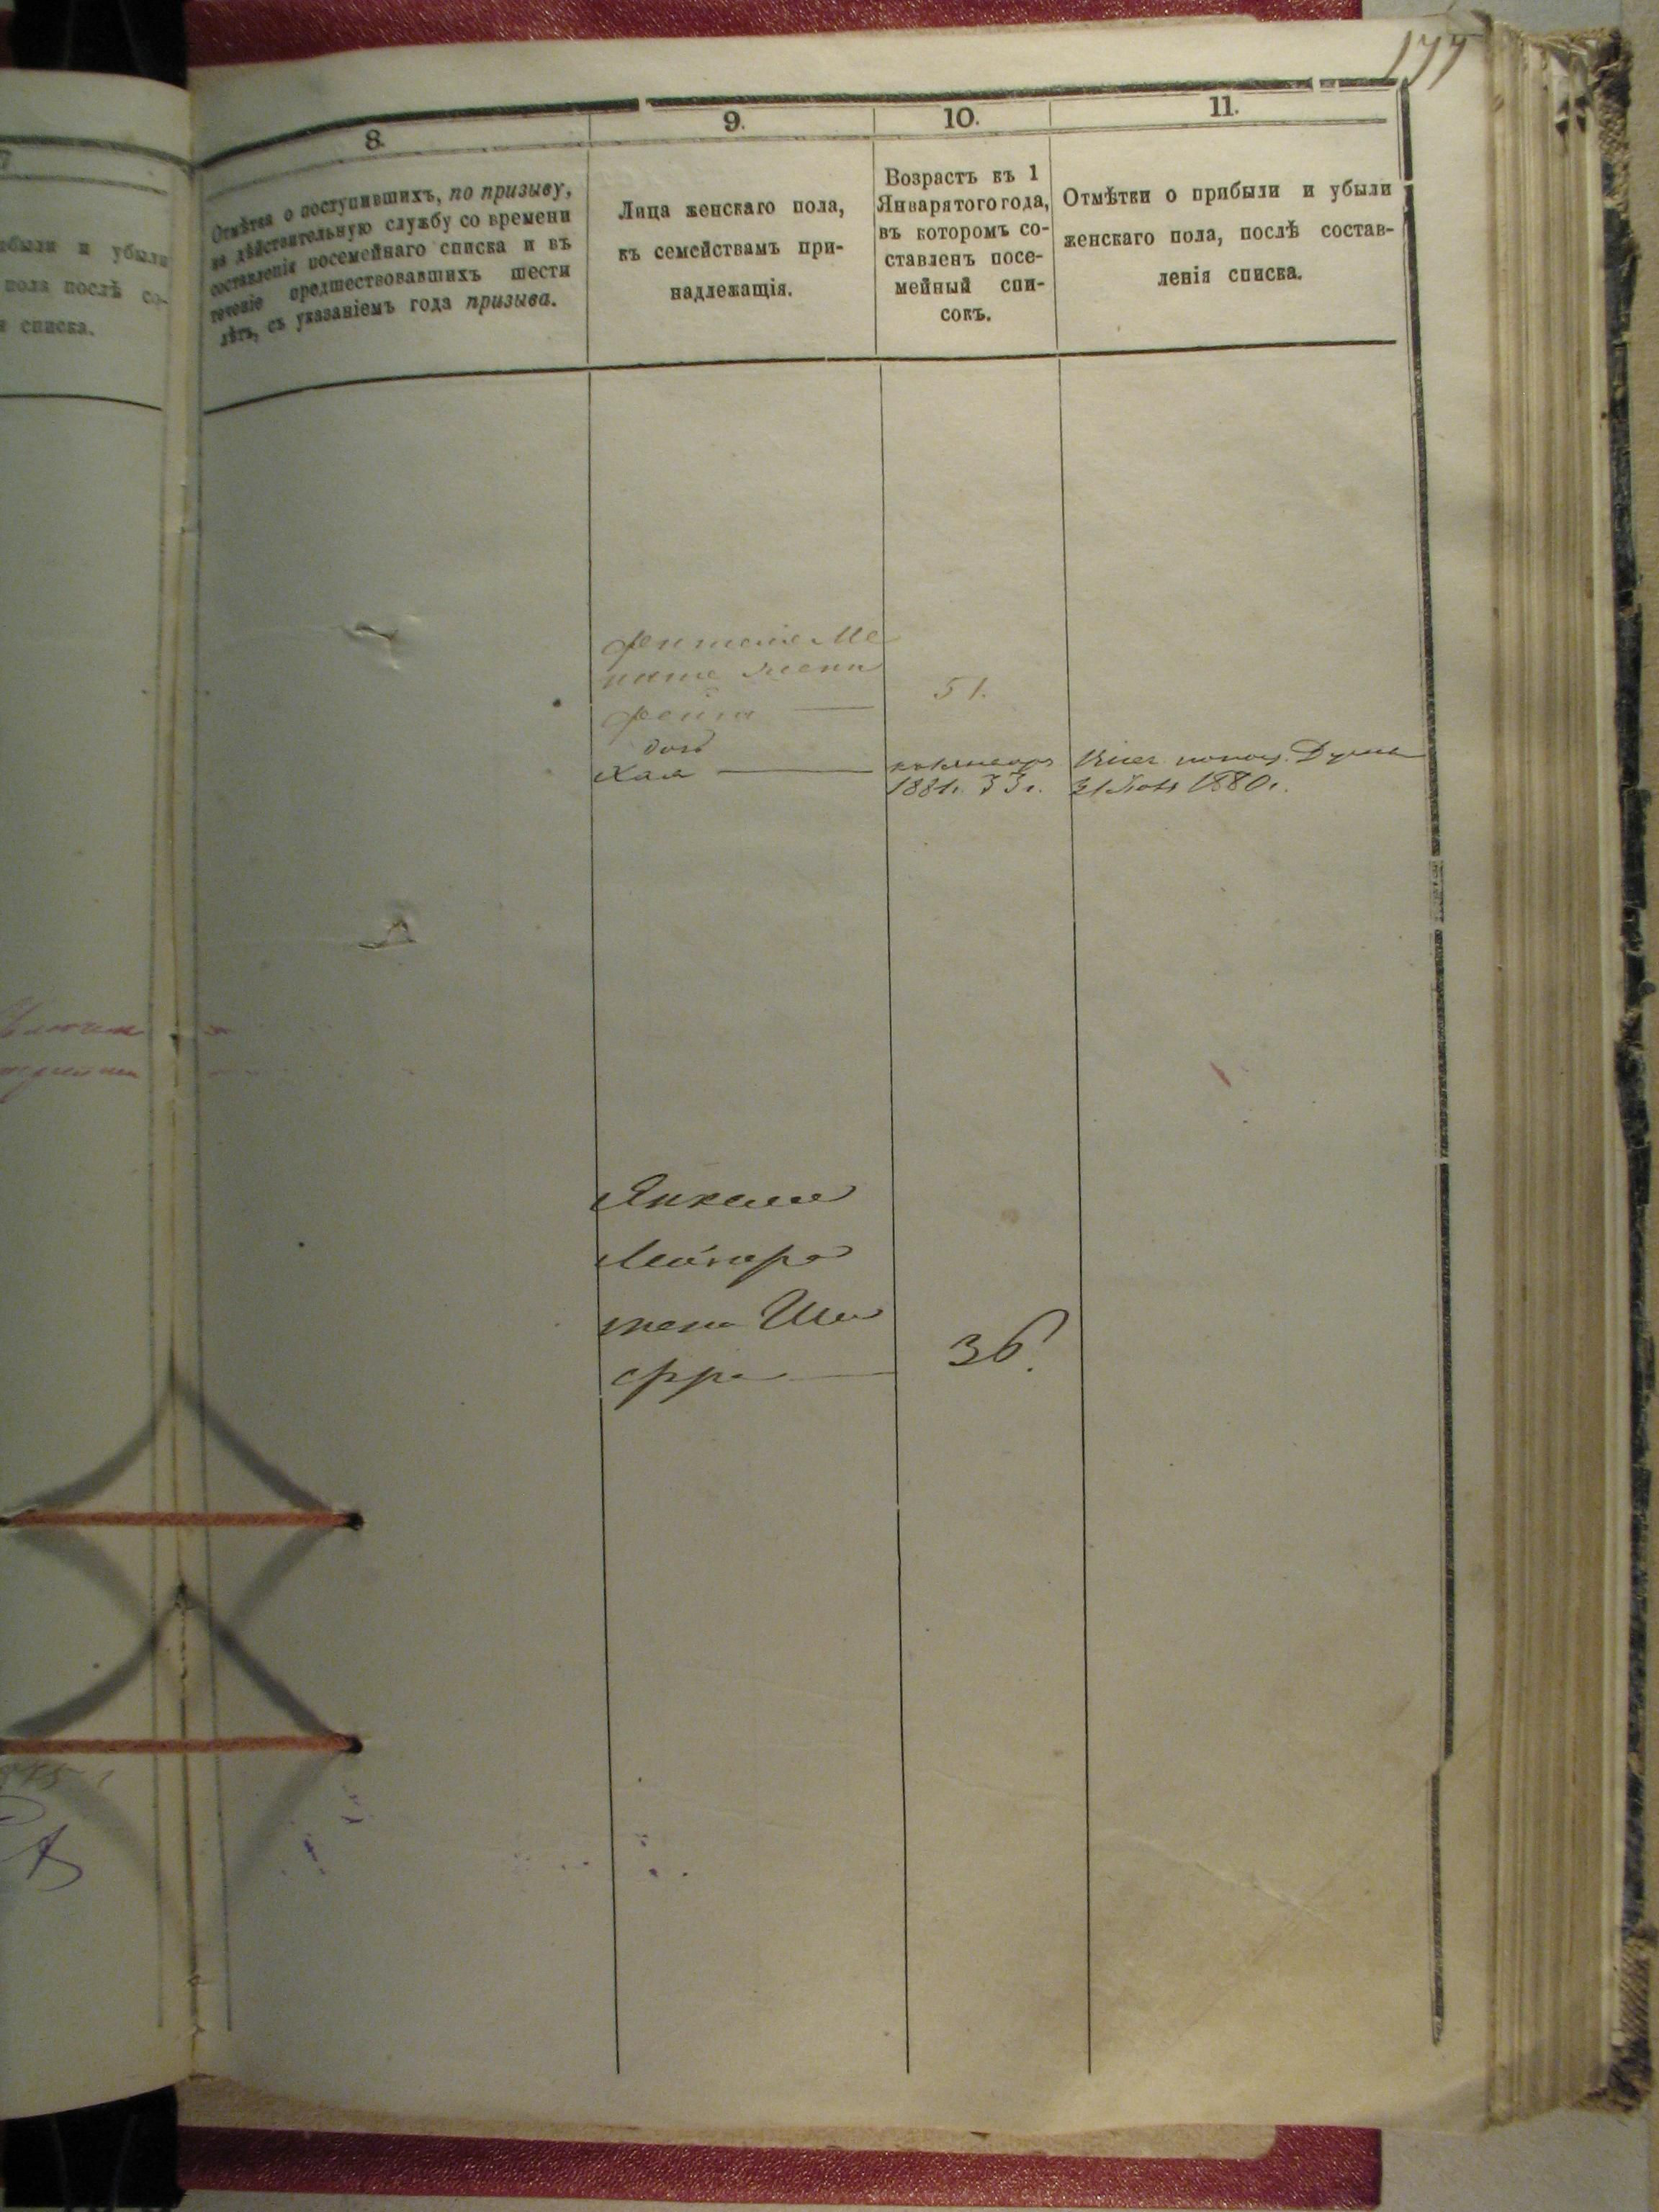 177
8.
9.
10.
11.
Отмѣтка о поступившихъ, по призыву,
на дѣйствительную службу со времени
составленія посемейнаго списка и въ
теченіе предшествовавшихъ шести
лѣтъ, съ указаніемъ года призыва.
Лица женскаго пола,
къ семействамъ при-
надлежащія.
Возрастъ къ 1
Января того года,
въ которомъ со-
ставленъ посе-
мейный спи-
сокъ.
Отмѣтки о прибыли и убыли
женскаго пола, послѣ состав-
ленія списка.
7
и убыли
пола послѣ со-
списка.
51.
дочь
Хая
1881г. 33г.
Думы
1880г.
Янкеля
Мейера
жена Ши
фра
36.